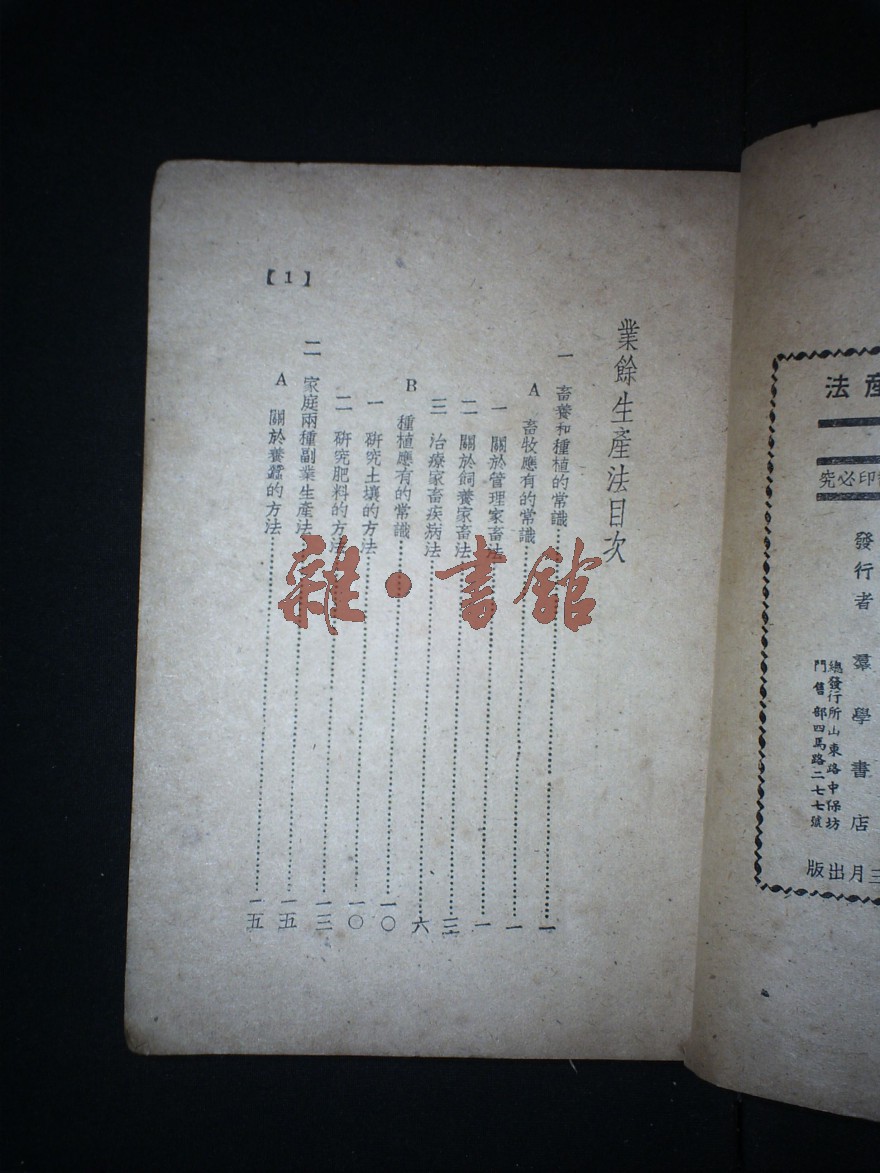 業餘生產法目次
一 畜養和種植的常識……一
A 畜牧應有的常識……一
一 關於管理家畜法……一
二 關於飼養家畜法……三
三 治療家畜疾病法……六
B 種植應有的常識……一〇
一 硏究土壤的方法……一〇
二 硏究肥料的方法……一三
二 家庭兩種副業生產法……一五
A 關於養蠶的方法……一五
【1】
雜·書館
產法
印必究
發行者 羣學書店
總發行所山東路中保坊
門售部四馬路二七七號
三月出版